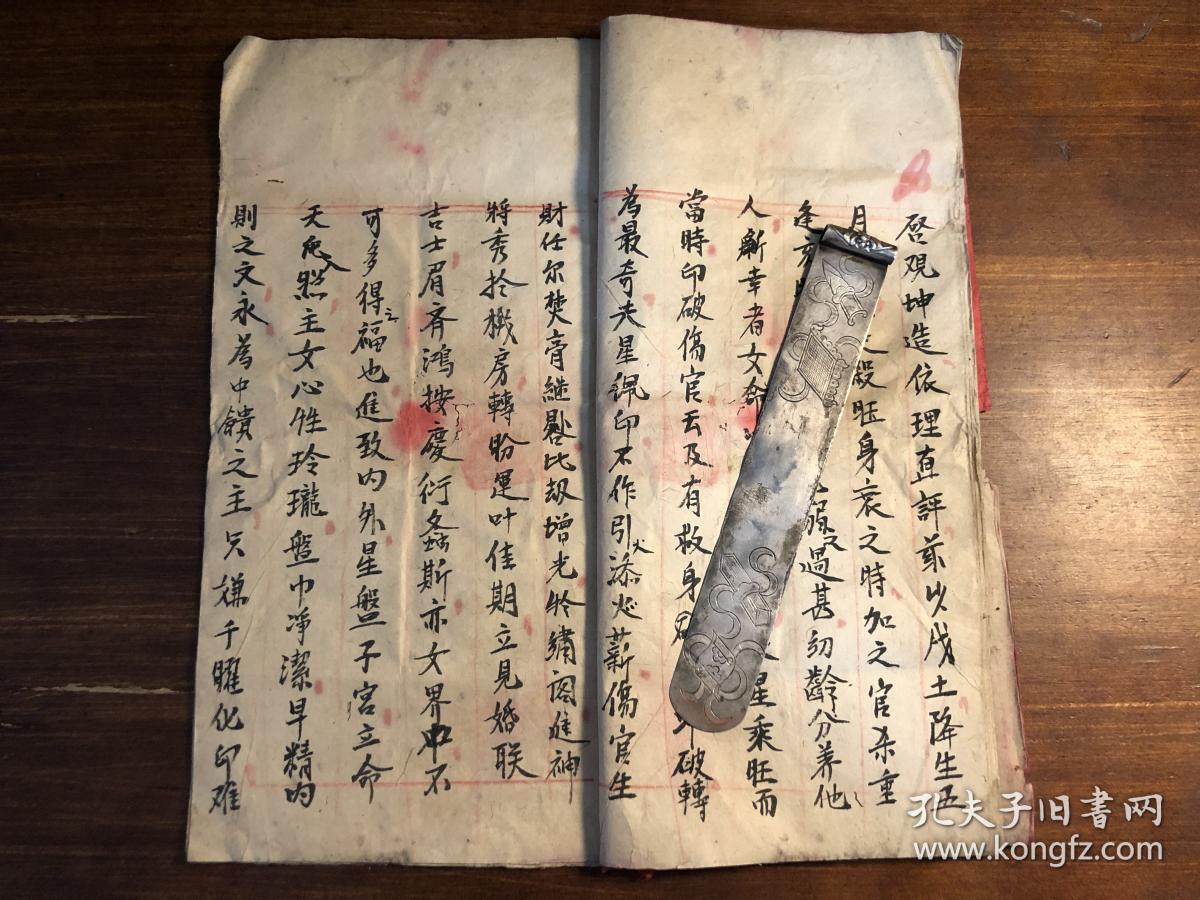 啓观坤造依理直評兹以戊土降生五
月 殺旺身衰之時加之官杀重
逢 弱過甚幼齡分养他
人 幸者女命 星乘旺而
當時印破傷官云及有救身 印破轉
為最奇夫星佩印不作引火添薪傷官生
財任尔焚膏继晷比劫增光於绣阁進神
将秀於機房轉盼運叶佳期立見婚联
吉士眉齐鴻按慶衍螽斯亦女界中不
可多得之福也進致内外星盤子宫立命
天 入照主女心性玲瓏盤巾净潔早精内
則之文永為中饋之主只嫌千曜化印难
孔夫子旧書网
www.kongfz.com